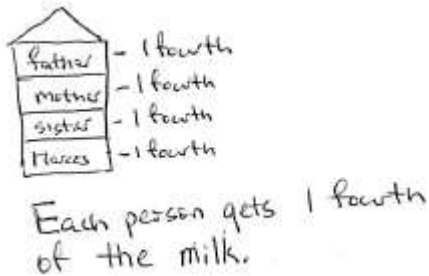 father - 1 fourth
mother - 1 fourth
sister - 1 fourth
- 1 fourth
Each person gets 1 fourth
of the milk.